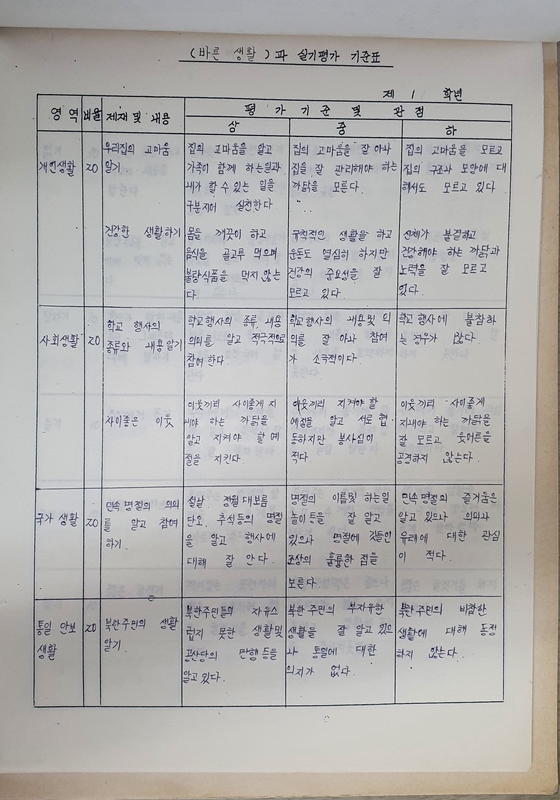 (바른 생활)과 실기평가 기준표
제 1 학년
영역 비율 제재 및 내용 평가기준 및 관점
상 중 하
개인생활 20 우리집의 고마움 집의 고마움을 알고 집의 고마움을 잘 아나 집의 고마움을 모르고
알기 가족이 함께 하는일과 집을 잘 관리해야 하는 집의 구조나 모양에 대
내가 할 수 있는 일을 까닭을 모른다 해서도 모르고 있다
구분지어 실천한다
건강한 생활하기 몸을 깨끗이 하고 규칙적인 생활을 하고 신체가 불결하고
음식을 골고루 먹으며 운동도 열심히 하지만 건강해야 하는 까닭과
불량식품을 먹지 않는 건강의 중요성을 잘 노력을 잘 모르고
다 모르고 있다. 있다.
사회생활 20 학교 행사의 학교행사의 종류, 내용 학교행사의 내용및 의 학교행사에 불참하
종류와 내용알기 의미를 알고 적극적으로 의를 잘 아나 참여 는 경우가 많다.
참여한다. 가 소극적이다.
사이좋은 이웃 이웃끼리 사이좋게 지 이웃끼리 지켜야 할 이웃끼리 사이좋게
내야 하는 까닭을 예절을 알고 서로 협 지내야 하는 까닭을
알고 지켜야 할 예 동하지만 봉사심이 잘 모르고 웃어른을
절을 지킨다. 적다. 공경하지 않는다.
국가 생활 20 민속명절의 의의 설날 정월대보름 명절의 이름및 하는일 민속명절의 즐거움은
를 알고 참여 단오, 추석등의 명절 놀이등을 잘 알고 알고 있으나 의의나
하기. 을 알고 행사에 있으나 명절에 깃든 유래에 대한 관심
대해 잘 안다. 조상의 훌륭한 점을 이 적다.
모른다.
통일 안보 20 북한주민의 생활 북한주민들의 자유스 북한 주민의 부자유한 북한주민의 비참한
생활 알기. 럽지 못한 생활및 생활을 잘 알고 있으 생활에 대해 동정
공산당의 만행등을 나 통일에 대한 하지 않는다.
알고있다. 의지가 없다.